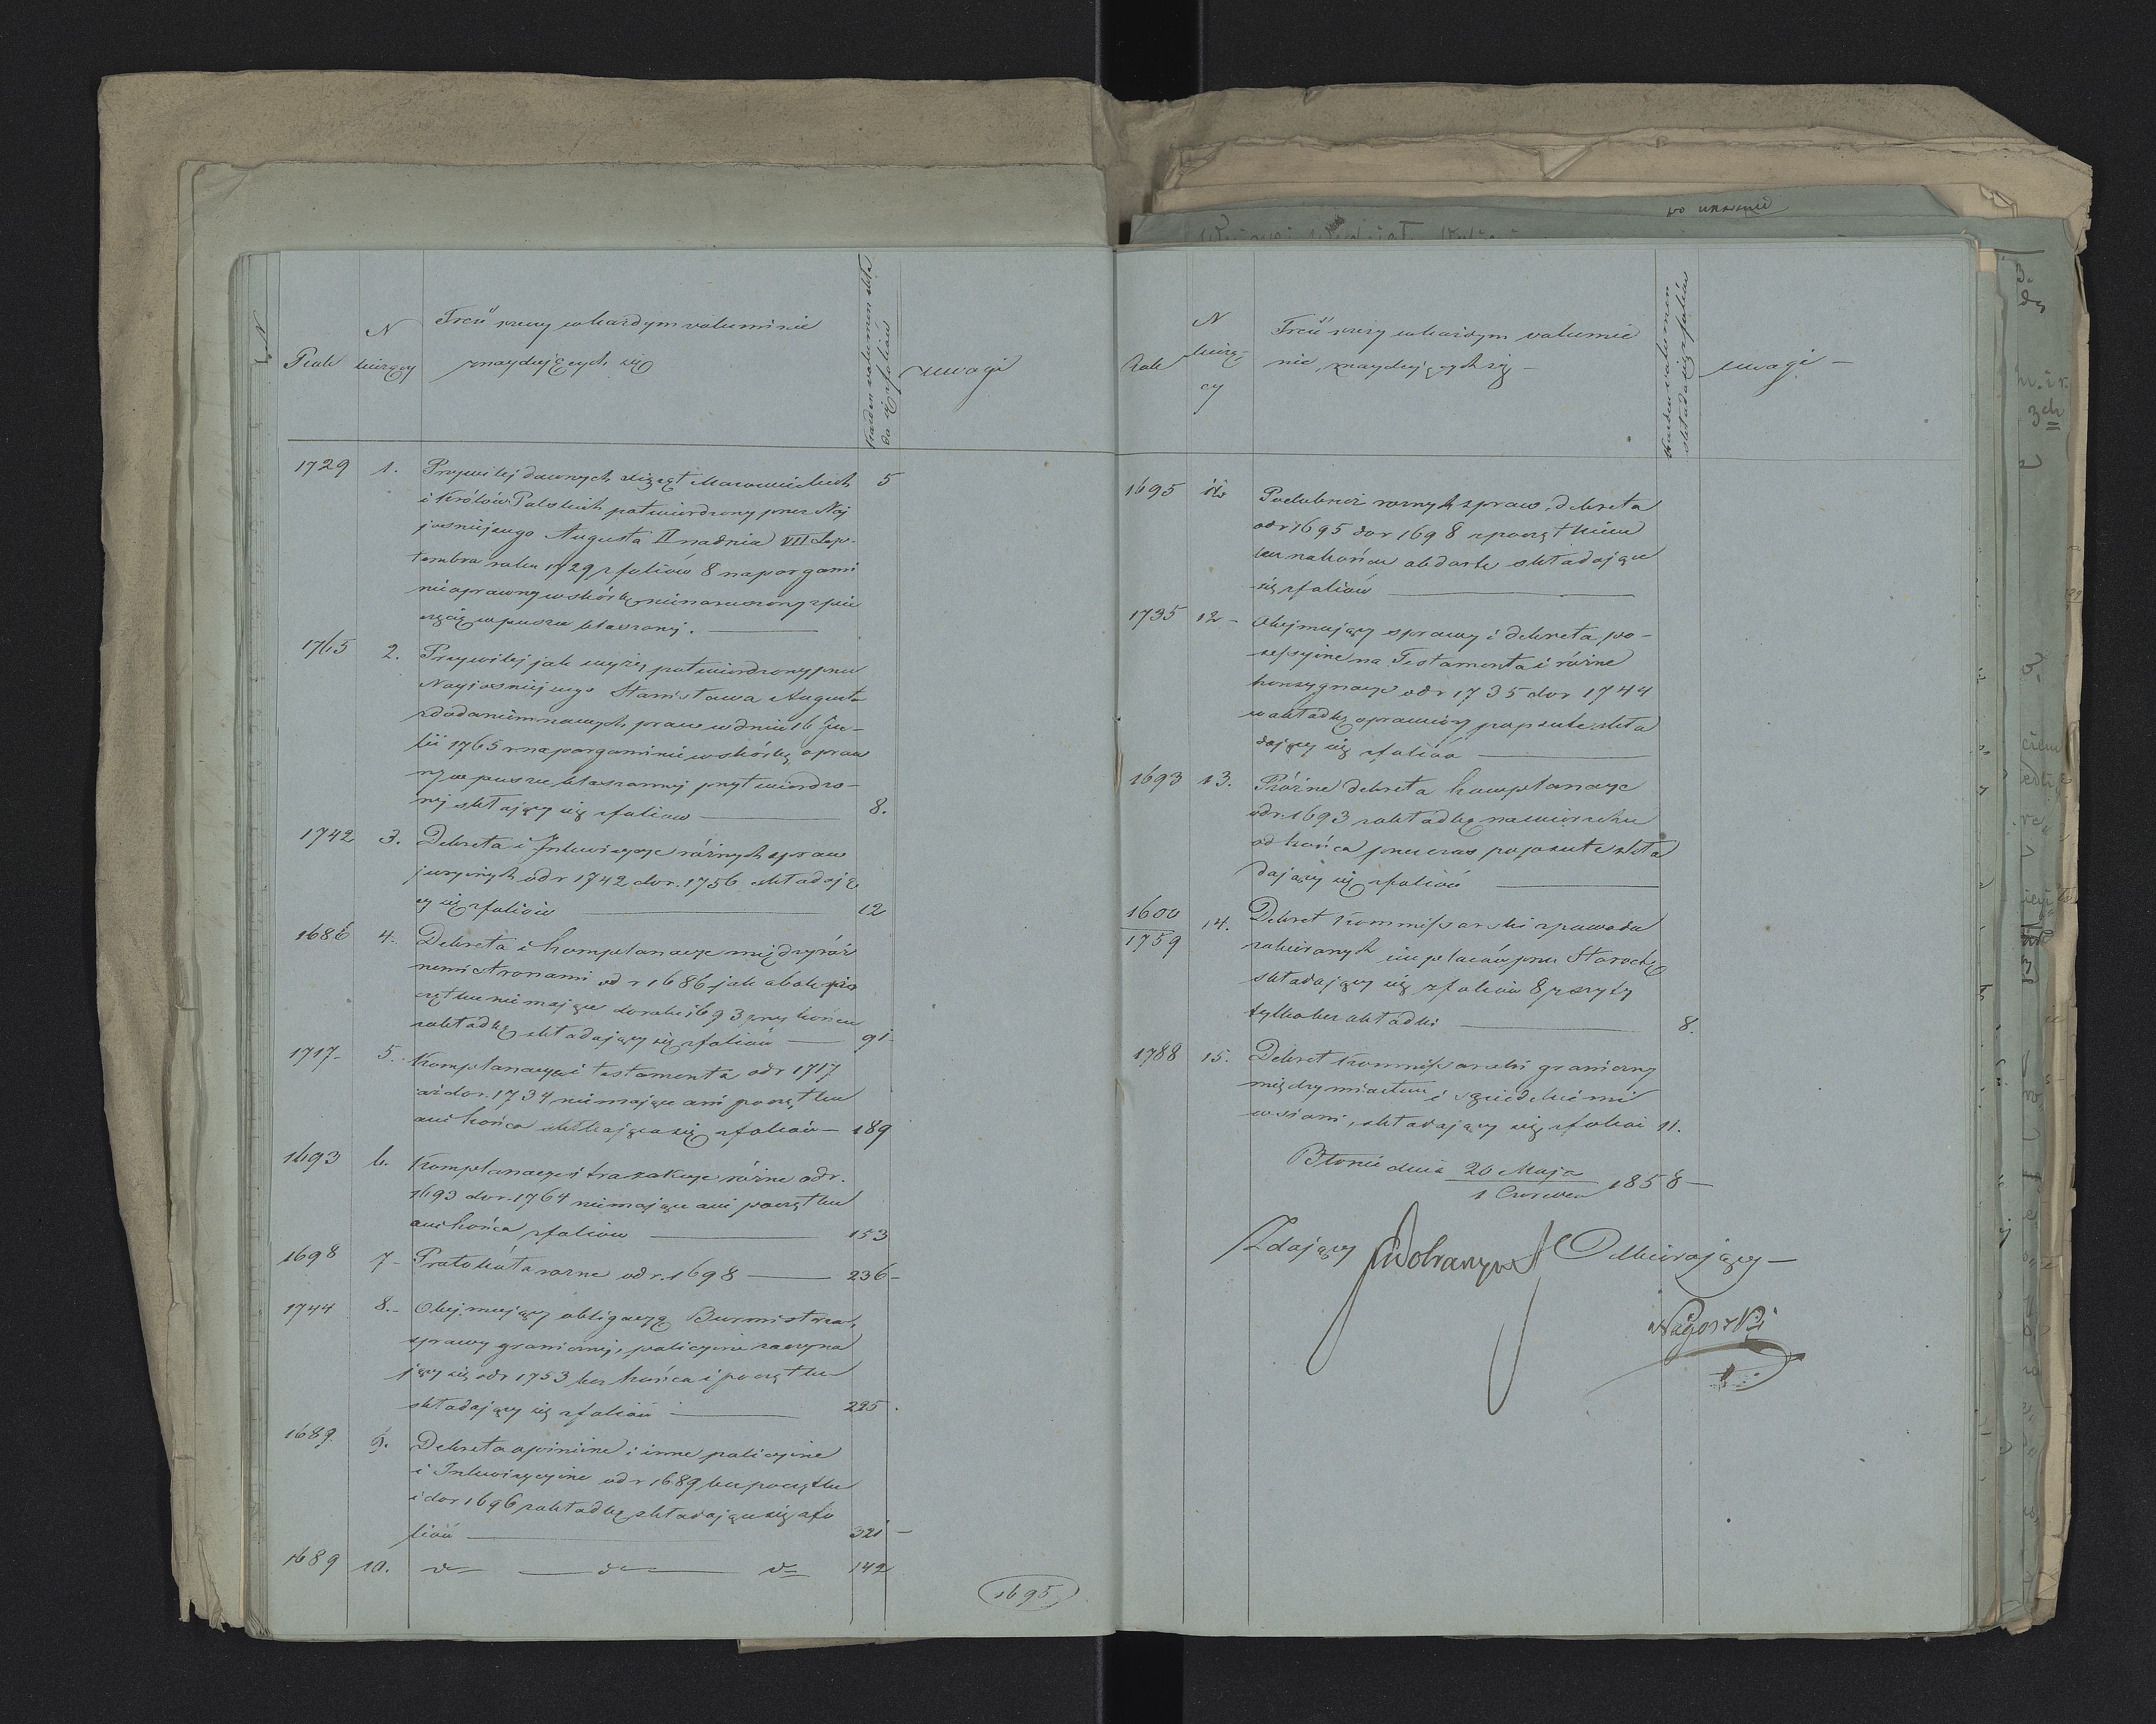 Rok
N
bieżący
Treść rzeczy w każdym voluminie
znaydujących się
Każden volumen skła
da się z foliów
uwagi
1729 1. Przywilej dawnych xiążąt Mazowieckich 5
i Królów Polskich potwierdzony przez Naj
jaśniejszego Augusta II na dnia VII Sep-
tembra roku 1729 z foliów 8 na pargami
nie oprawny w skórkę nienaruszony z pie
częcią w puszce blaszanej.
1765 2. Przywilej jak wyżej potwierdzony przez
Nayjaśniejszego Stanisława Augusta
z dodaniem nowych praw w dniu 16 Ju-
lii 1765 r na pargaminie w skórkę opraw
ny w puszce blaszannej przytwierdzo-
nej skłający się z foliów 8.
1742 3. Dekreta i Inkwizycye różnych spraw
juryznych od r 1742 do r. 1756 składają
cy się z foliów 12
1686 4. Dekreta i komplanacye między róż
nemi stronami od r 1686 jak obok po
czątku nie mające do roku 1693 przy końcu
zakładkę składający się z foliów 91
1717- 5. Komplanacye i testamenta od r 1717
aż do r. 1734 nie mające ani początku
ani końca składająca się z foliów 189
1693 6. Komplanacye i tranzakcye różne od r.
1693 do r. 1764 nie mające ani początku
ani końca z foliów 153
1698 7- Protokóła rózne od r. 1698 236-
1744 8.- Obejmujący obligacyą Burmistrza,
sprawy graniczne, policyine zaczyna
jący się od r 1753 bez końca i początku
składający się z foliów 225.
1689 9. Dekreta opiniine i inne policyine
i Inkwizycyine od r 1689 bez początku
i do r 1696 zakładkę składające się z fo
liów 321-
1689 10. do do do 142
1695
Rok
N
bieżą-
cy
Treść rzeczy w każdym volumie
nie, znaydujących się -
Każden volumen
składa się z foliów
uwagi -
1695 11. Podobnież roznych spraw, dekreta
od r 1695 do r 1698 z początkiem
lecz na końcu obdarte składające
się z foliów
1735 12- Obejmujący sprawy i dekreta po-
sessyine na Testamenta i różne
konsygnacye od r 1735 do r 1744
w okładkę oprawiony popsute skła
dający się z foliów
1693 13. Różne dekreta komplanacye
od r. 1693 zakładkę na wierzchu
od końca przez czas popsute skła
dający się z foliów
1600
1759 14. Dekret Kommissarski z powodu
zabieranych im placów przez Starostę
składający się z foliów 8 zszyty
tylko bez okładki 8.
1788 15. Dekret Kommissarski graniczny
między miastem i sąsiedzkiemi
wsiami, składający się z foliów 11.
Błonie dnia 20 Maja
1 Czerwca 1858 -
Zdający Odbierający -
Nagorski